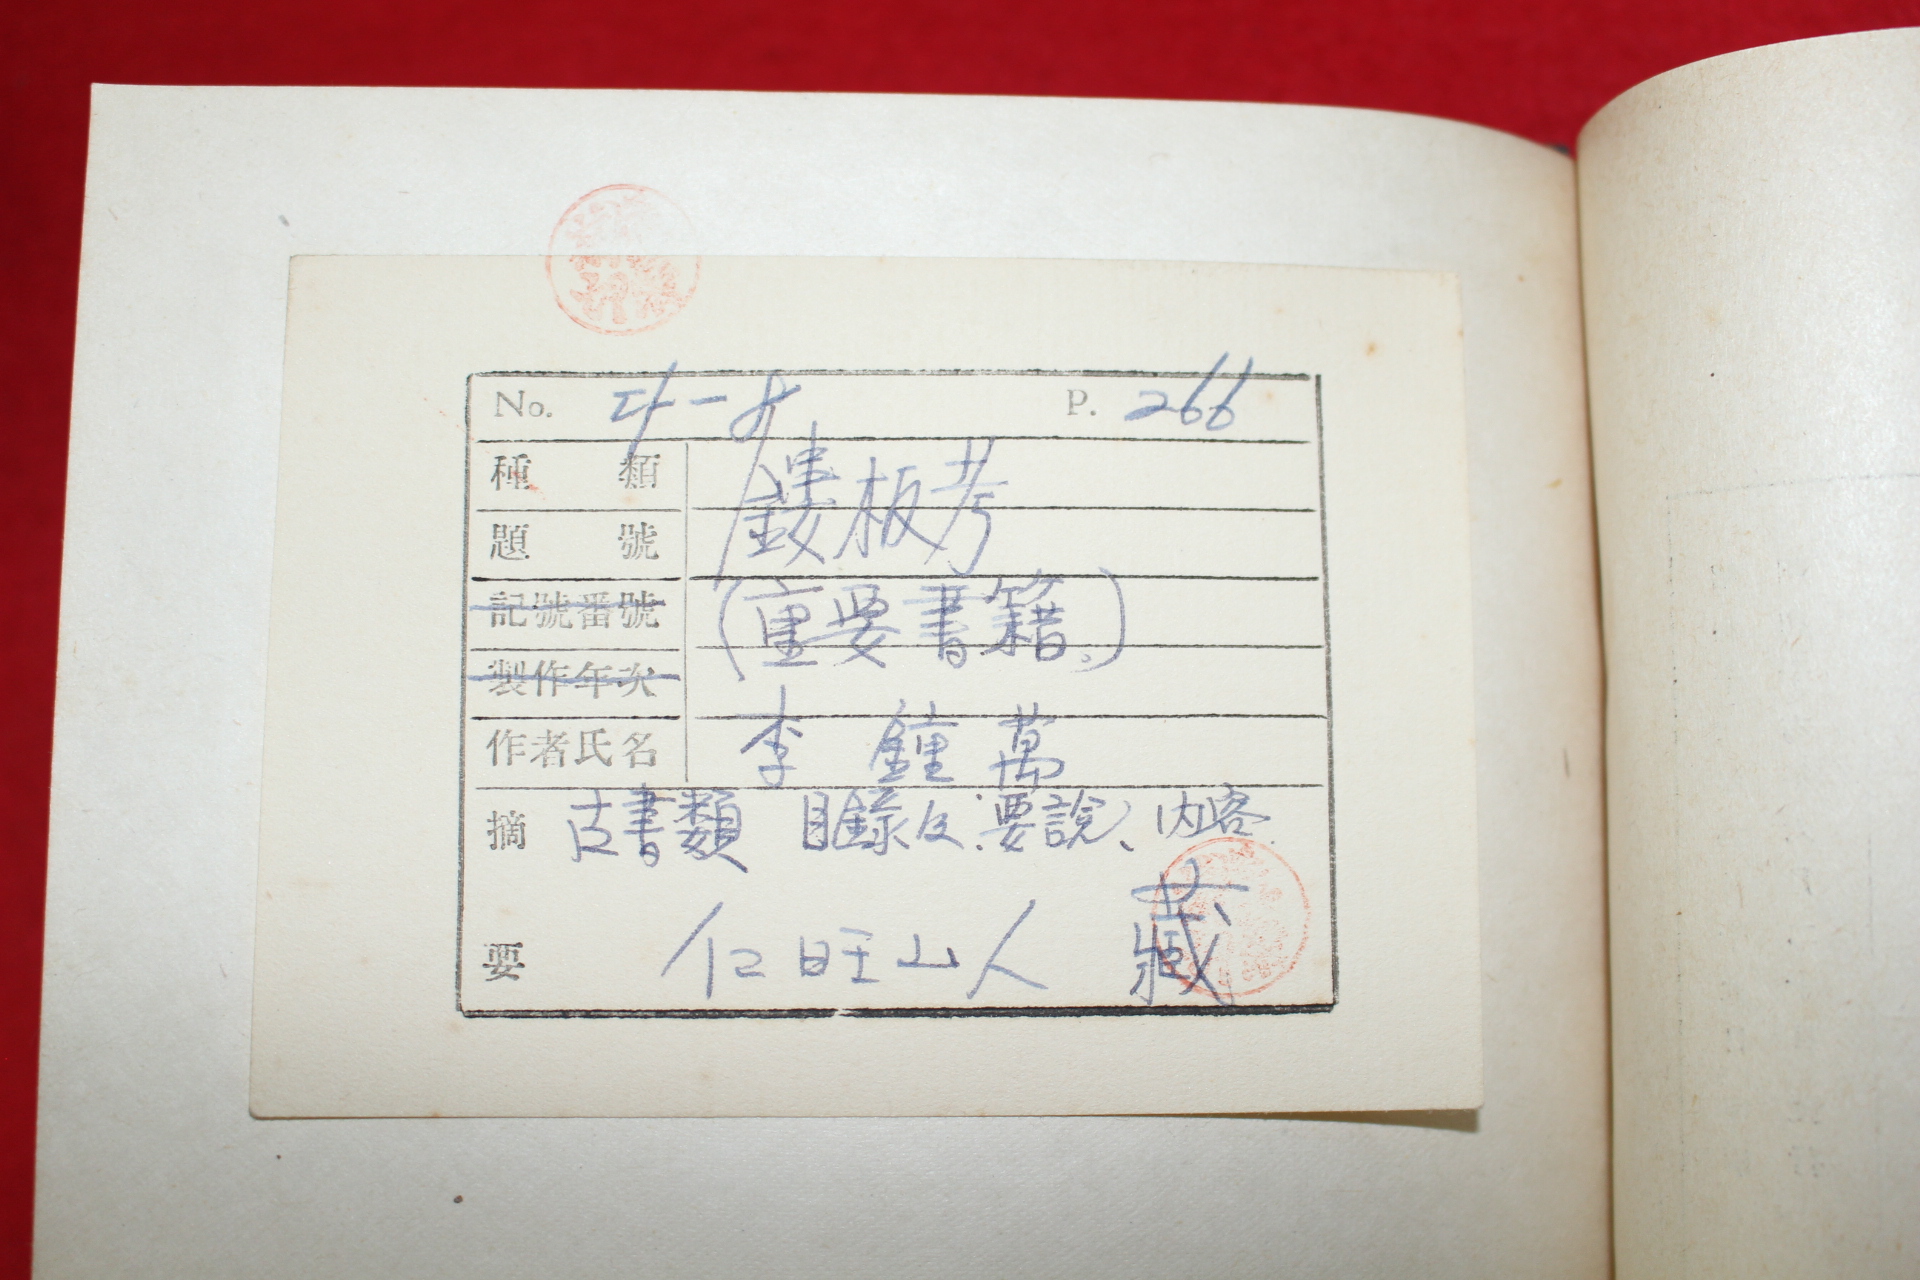 No. 다-8 P. 266
種類 鏤板考
題號
記號番號 (重要書籍。)
製作年次
作者氏名 李鍾萬
摘 古書類 目錄及 要說、內容
要 仁旺山人 藏